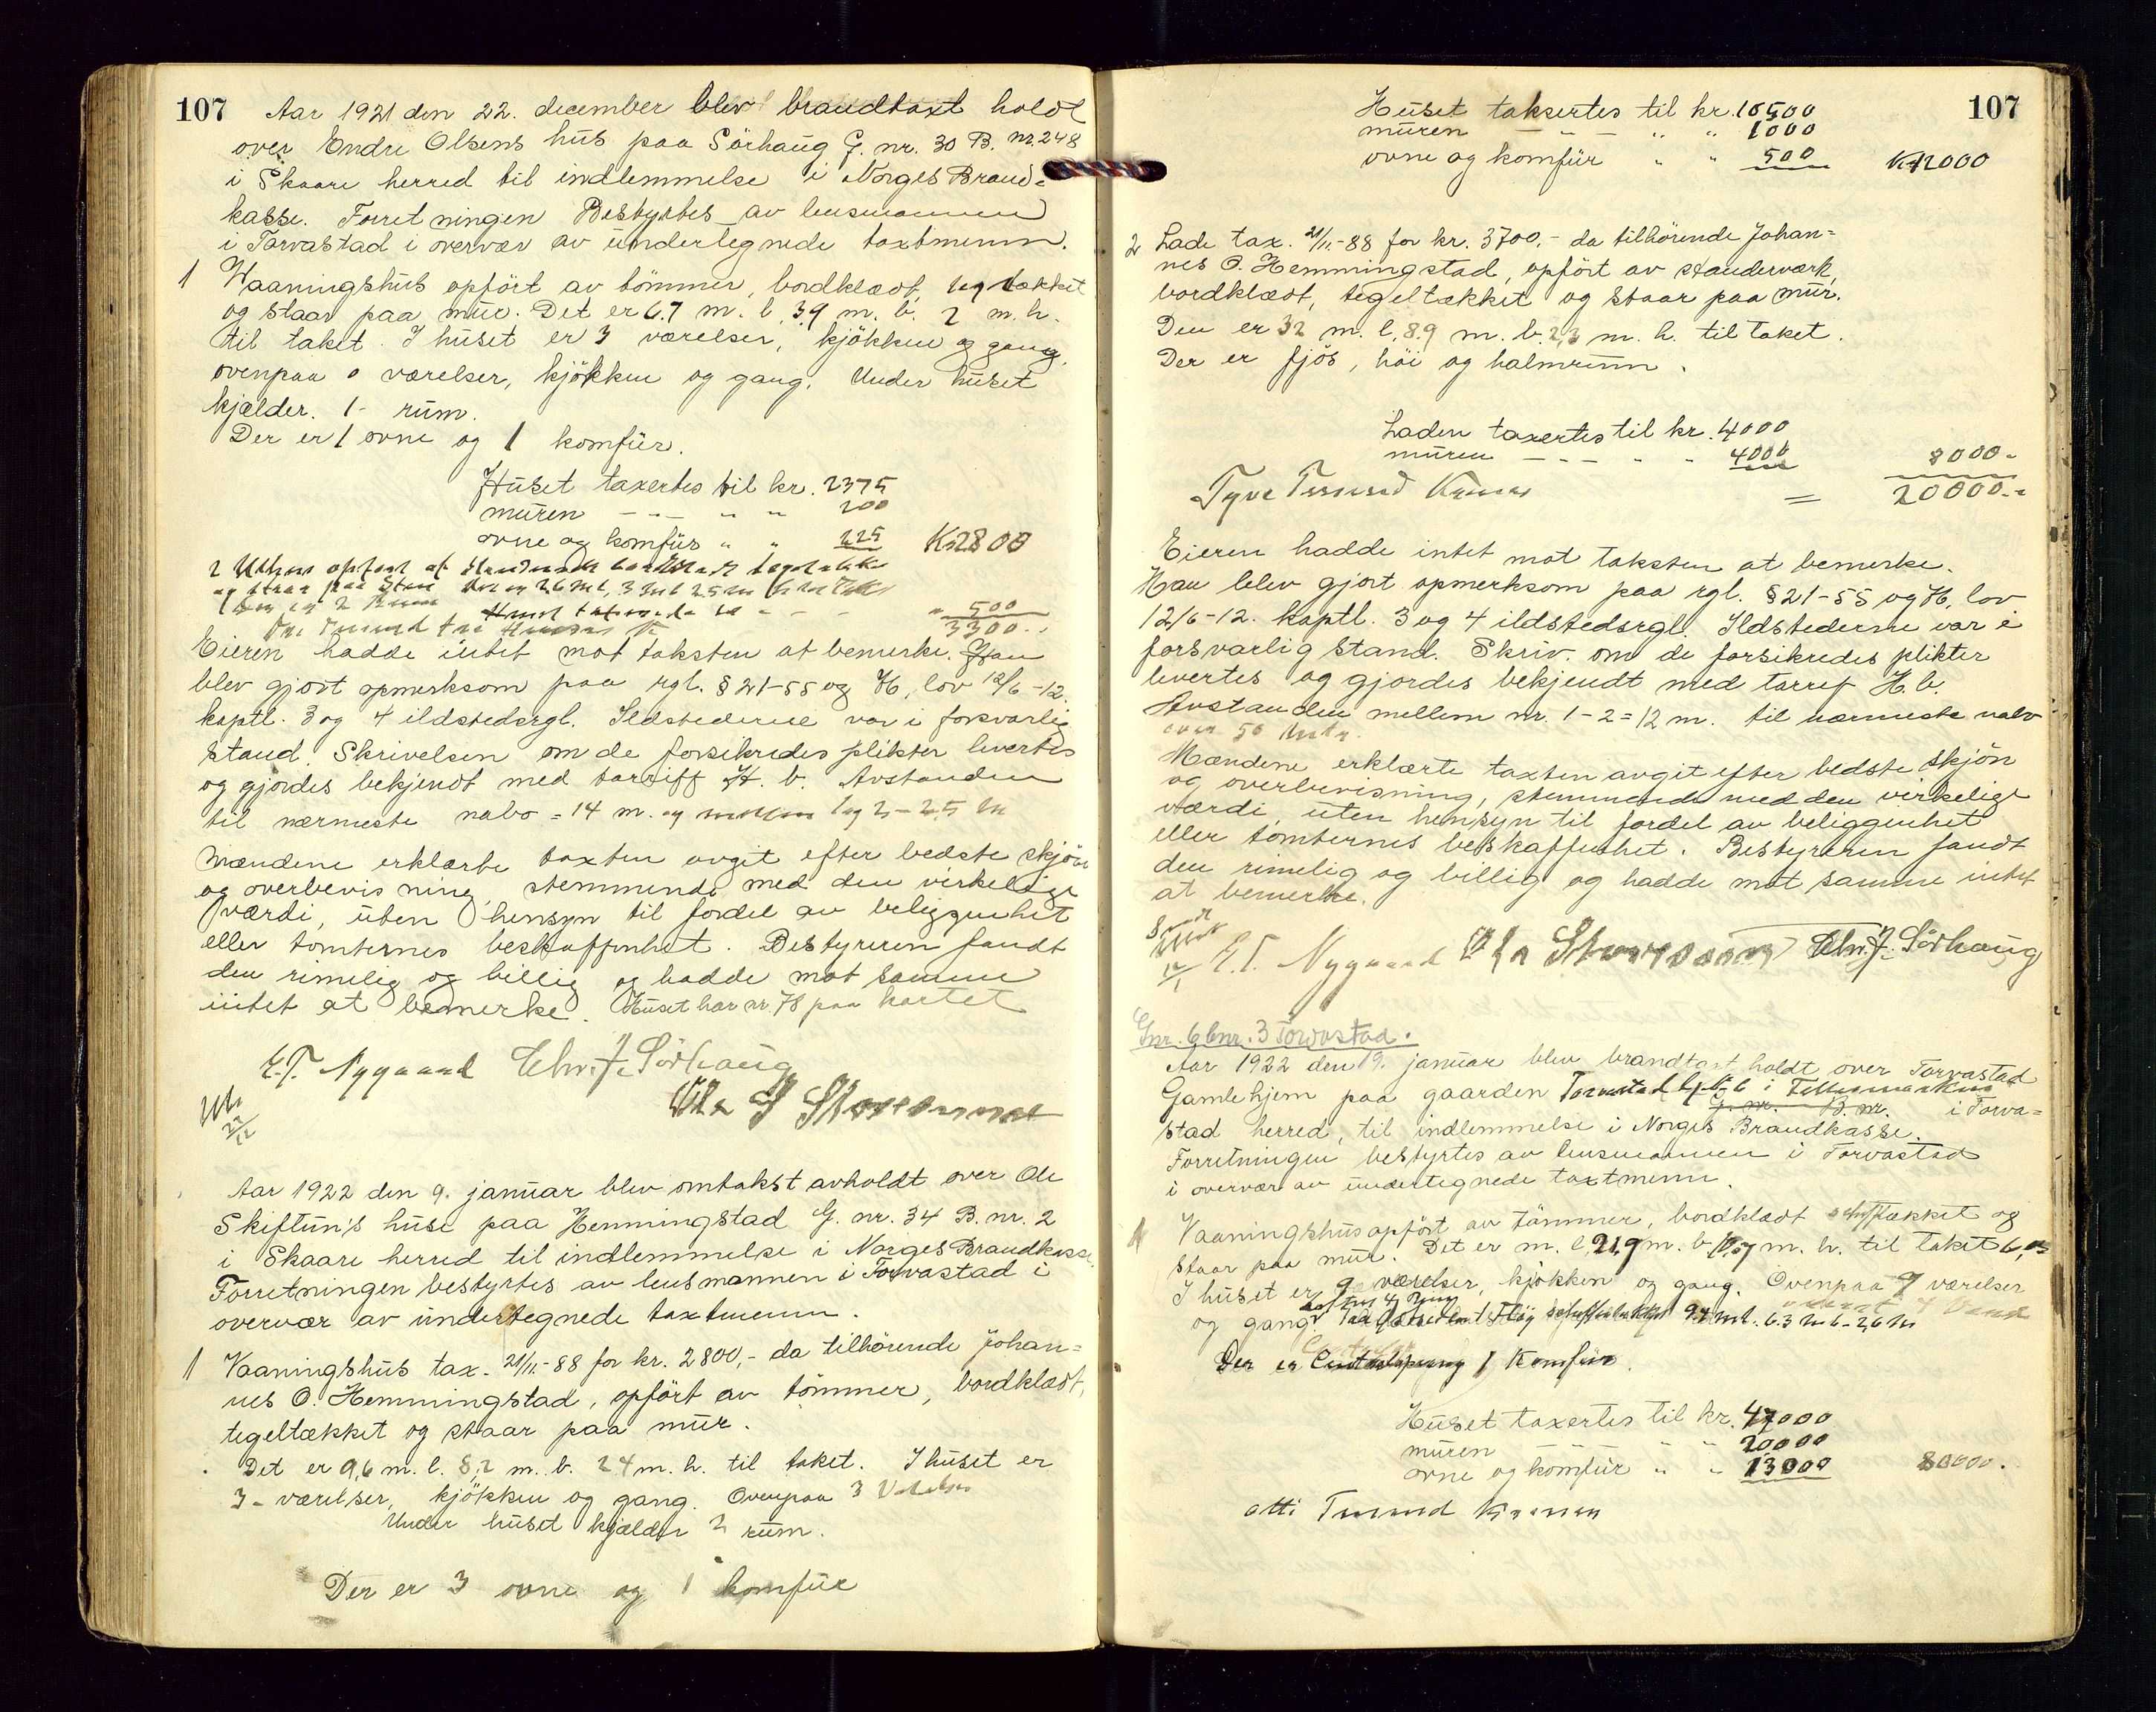 107
Aar 1921 den 22. december blev brandtaxt holdt
over Endre Olsens hus paa Sörhaug G. nr. 30 B. nr. 248
i Skaare herred til indlemmelse i Norges Brand-
kasse. Forretningen Bestyrtes av lensmannen
i Torvastad i overvær av undertegnede taxtmenn.
1 Vaaningshus opfört av tömmer, bordklædt, teg tækket
og staar paa mur. Det er 6.7 m. l. 3.9 m. b. 2 m. h.
til taket. I huset er 3 værelser, kjökken og gang,
ovenpaa 0 værelser, kjökken og gang. Under huset
kjælder. 1- rum.
Der er 1 ovne og 1 komfür.
Huset taxertes til kr. 2375
muren — - — " " 200
ovne og komfür " " 225 Kr 2800
2 Uthus opfört af
og staar paa Sten 26 ml, 3 mb 25 m
2 Rum " 500
3300..
Eieren hadde intet mot taksten at bemerke. Han
blev gjort opmerksom paa rgl. § 21-55 og 76, lov 12/6-12.
kaptl. 3 og 4 ildstedsrgl. Ildstederne var i forsvarlig
stand. Skrivelsen om de forsikredes plikter levertes
og gjordes bekjendt med tarriff H. b. Avstanden
til nærmeste nabo = 14 m. og mellem 1 og 2 - 25 m
Mændene erklærte taxten avgit efter bedste skjön
og overbevisning, stemmende med den virkelige
værdi, uten hensyn til fordel av beliggenhet
eller tomternes beskaffenhet. Bestyreren fandt
den rimelig og billig og hadde mot samme
intet at bemerke. Huset har nr. 78 paa kartet
E.T. Nygaard Chr. J. Sörhaug
Ola S
22/12
Aar 1922 den 9. januar blev omtakst avholdt over Ole
Skiftun's huse paa Hemmingstad G. nr. 34 B. nr. 2
i Skaare herred til indlemmelse i Norges Brandkasse.
Forretningen bestyrtes av lensmannen i Torvastad i
overvær av undertegnede taxtmenn.
1 Vaaningshus tax. 21/11-88 for kr. 2800,- da tilhörende Johan=
nes O. Hemmingstad, opfört av tömmer, bordklædt,
tegeltækket og staar paa mur.
Det er 9,6 m. l. 8,2 m. b. 24 m. h. til taket. I huset er
3 - værelser, kjökken og gang. Ovenpaa 3 Værelser
Under huset kjælder 2 rum.
Der er 3 ovne og 1 komfür
107
Huset taksertes til kr. 10500
muren — - — " " 1000
ovne og komfür " " 500 Kr 12000
2 Lade tax. 21/11-88 for kr. 3700.- da tilhörende Johan=
nes O. Hemmingstad, opfört av standerværk,
bordklædt, tegeltækket og staar paa mur.
Den er 32 m. l. 8.9 m. b. 2,3 m. h. til taket.
Der er fjös, höi og halmrum.
Laden taxertes til kr. 4000
muren — - - " " 4000 8000-
Tyve Tusend Kroner = 20000.-
Eieren hadde intet mot taksten at bemerke.
Han blev gjort opmerksom paa rgl. § 21-55 og 76, lov
12/6-12. kaptl. 3 og 4 ildstedsrgl. Ildstederne var i
forsvarlig stand. Skriv. om de forsikredes plikter
levertes og gjordes bekjendt med tarref H. b.
Avstanden mellem nr. 1-2 = 12 m. til nærmeste nabo
over 50 Mtr.
Mændene erklærte taxten avgit efter bedste skjön
og overbevisning, stemmende med den virkelige
værdi, uten hensyn til fordel av beliggenhet
eller tomternes beskaffenhet. Bestyreren fandt
den rimelig og billig og hadde mot samme intet
at bemerke.
E.T. Nygaard Ola Chr. J. Sörhaug
Gnr. 6 bnr. 3 Torvastad.
Aar 1922 den 19. januar blev brandtaxt holdt over Torvastad
Gamlehjem paa gaarden Torvastad i
G. nr. B. nr. i Torva=
stad herred, til indlemmelse i Norges Brandkasse.
Forretningen bestyrtes av lensmannen i Torvastad
i overvær av undertegnede taxtmenn.
1 Vaaningshus opfört av tömmer, bordklædt tækket og
staar paa mur. Det er m. l. 21,9 m. b. 10,7 m. h. til taket 6,
I huset er 9 værelser, kjökken og gang. Ovenpaa 9 værelser
og gang. 9.4 ml. 6.3 m b - 2,6 m
Der er 1 Komfür.
Huset taxertes til kr. 47000
muren — - — " " 20000
ovne og komfür " " 13000 80000.
Otti Tusend Kroner